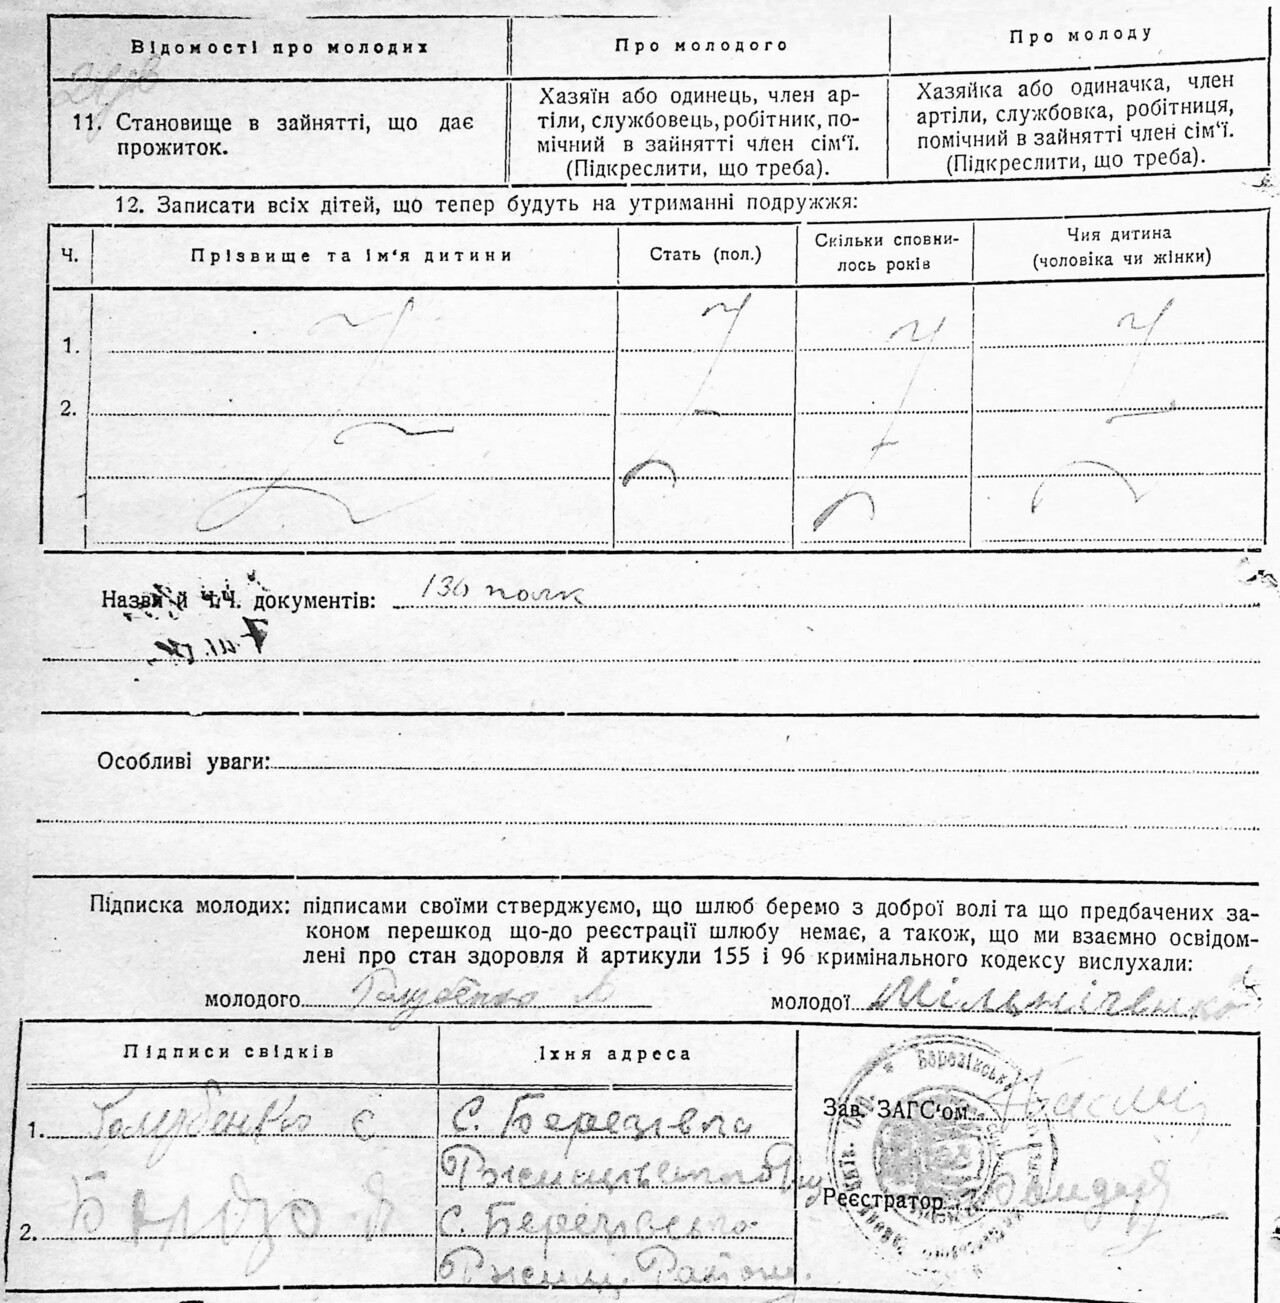 Відомості про молодих
Про молодого
Про молоду
11. Становище в зайнятті, що дає
прожиток.
Хазяїн або одинець, член ар-
тіли, службовець, робітник, по-
мічний в зайнятті член сім'ї.
(Підкреслити, що треба).
Хазяйка або одиначка, член
артіли, службовка, робітниця,
помічний в зайнятті член сім'ї.
(Підкреслити, що треба).
12. Записати всіх дітей, що тепер будуть на утриманні подружжя:
Ч.
Прізвище та ім'я дитини
Стать (пол.)
Скільки сповни-
лось років
Чия дитина
(чоловіка чи жінки)
1.
2.
Назви й Ч.Ч. документів: 130 полк
Особливі уваги:
Підписка молодих: підписами своїми стверджуємо, що шлюб беремо з доброї волі та що предбачених за-
коном перешкод що-до реєстрації шлюбу немає, а також, що ми взаємно освідом-
лені про стан здоровля й артикули 155 і 96 кримінального кодексу вислухали:
молодого Голубенко
молодої Мільніченко
Підписи свідків
Їхня адреса
1. Голубенко Є
С. Березівка
Зав. ЗАГС'ом
2.
С. Березівка
Реєстратор Бондар